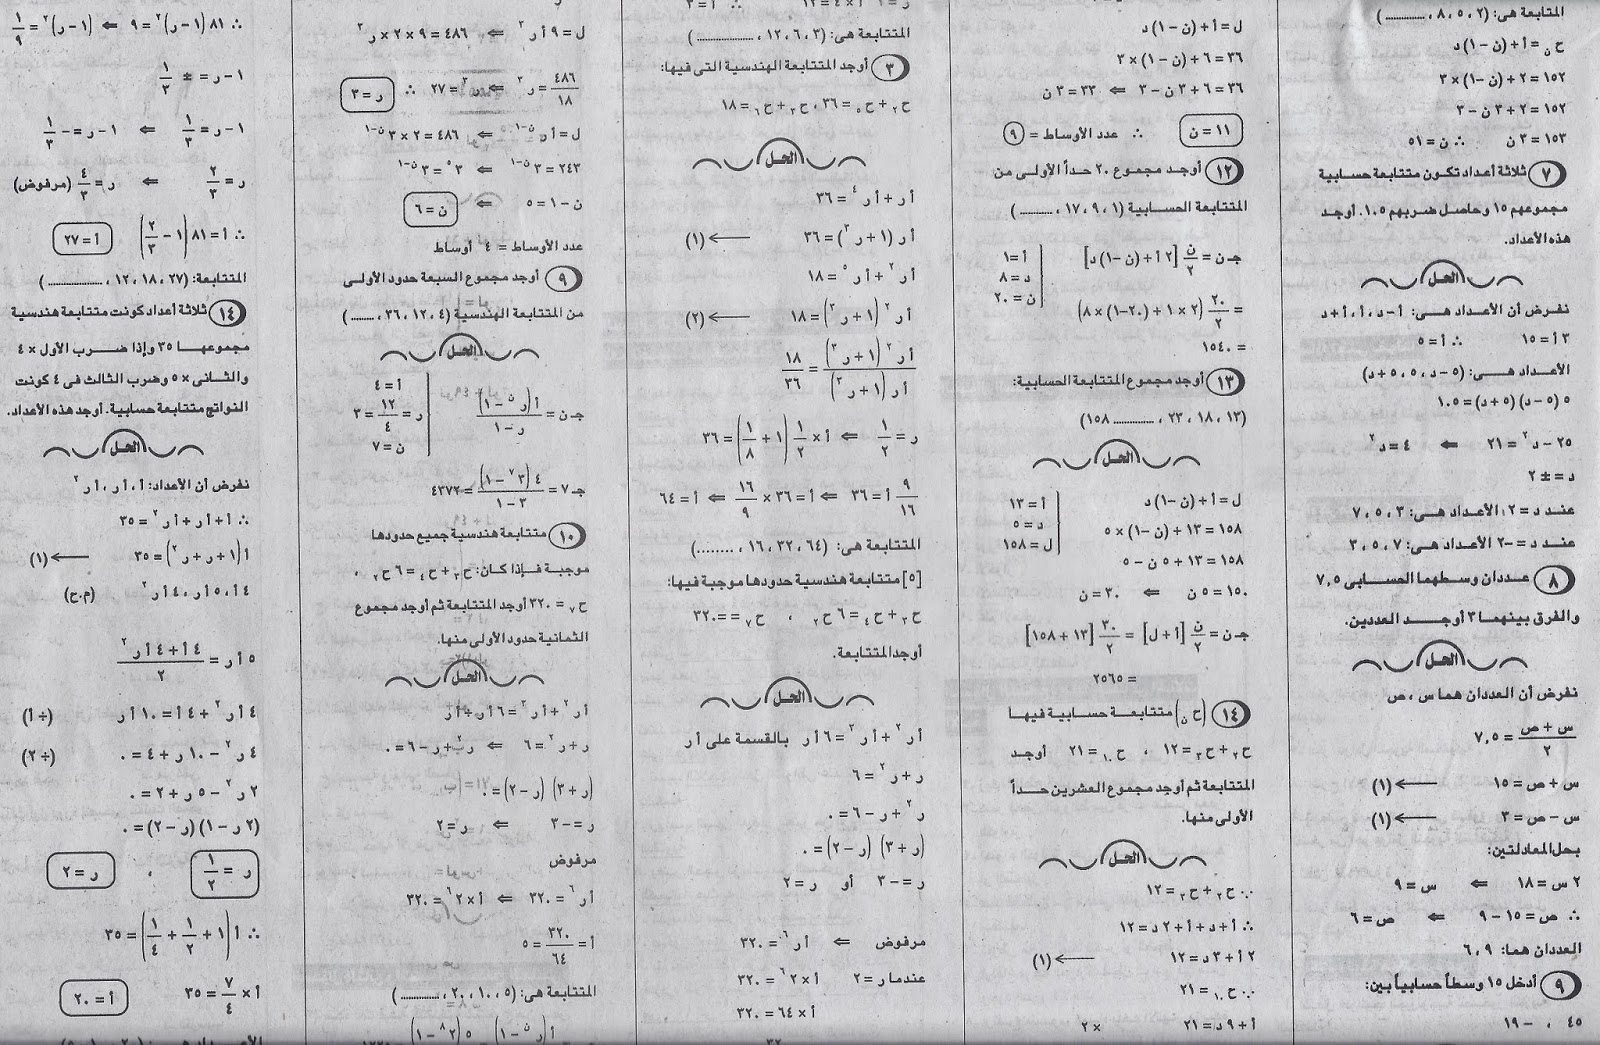 المتتابعة هى: (٢ ، ٥ ، ٨ ، .............)
ح ن = أ + (ن – ١) د
١٥٢ = ٢ + (ن – ١) × ٣
١٥٢ = ٢ + ٣ ن – ٣
١٥٣ = ٣ ن ∴ ن = ٥١
٧ ثلاثة أعداد تكون متتابعة حسابية
مجموعهم ١٥ وحاصل ضربهم ١٠٥. أوجد
هذه الأعداد.
الحل
نفرض أن الأعداد هى: أ – د ، أ ، أ + د
٣ أ = ١٥ ∴ أ = ٥
الأعداد هـى: (٥ – د ، ٥ ، ٥ + د)
٥ (٥ – د) (٥ + د) = ١٠٥
٢٥ – د٢ = ٢١ ⇐ ٤ = د٢
د = ± ٢
عند د = ٢: الأعداد هى: ٣ ، ٥ ، ٧
عند د = –٢ الأعداد هى: ٧ ، ٥ ، ٣
٨ عددان وسطهما الحسابى ٧,٥
والفرق بينهما ٣ أوجـد العددين.
الحل
نفرض أن العددان هما س ، ص
س + ص / ٢ = ٧,٥
س + ص = ١٥ ← (١)
س – ص = ٣ ← (١)
بحل المعادلتين:
٢ س = ١٨ ⇐ س = ٩
∴ ص = ١٥ – ٩ ⇐ ص = ٦
العددان هما: ٩ ، ٦
٩ أدخل ١٥ وسطاً حسابياً بين:
٤٥ ، – ١٩
ل = أ + (ن – ١) د
٣٦ = ٦ + (ن – ١) × ٣
٣٦ = ٦ + ٣ ن – ٣ ⇐ ٣٣ = ٣ ن
١١ = ن ∴ عدد الأوساط = ٩
١٢ أوجـد مجموع ٢٠ حـداً الأولى من
المتتابعة الحسابية (١ ، ٩ ، ١٧ ، ..........)
جـ ن = ن/٢ [٢ أ + (ن – ١) د] أ = ١
د = ٨
ن = ٢٠
= ٢٠/٢ (٢ × ١ + (٢٠–١) × ٨)
= ١٥٤٠
١٣ أوجد مجموع المتتابعة الحسابية:
(١٣ ، ١٨ ، ٢٣ ، ............. ١٥٨)
الحل
ل = أ + (ن – ١) د أ = ١٣
١٥٨ = ١٣ + (ن – ١) × ٥ د = ٥
١٥٨ = ١٣ + ٥ ن – ٥ ل = ١٥٨
١٥٠ = ٥ ن ⇐ ٣٠ = ن
جـ ن = ن/٢ [أ + ل] = ٣٠/٢ [١٣ + ١٥٨]
= ٢٥٦٥
١٤ (ح ن) متتابعـة حسابية فيهـا
ح٢ + ح٣ = ١٢ ، ح١٠ = ٢١ أوجد
المتتابعة ثم أوجد مجموع العشرين حـداً
الأولى منها.
الحل
∵ ح٢ + ح٣ = ١٢
∴ أ + د + أ + ٢ د = ١٢
٢ أ + ٣ د = ١٢ ← (١)
∵ ح١٠ = ٢١
أ + ٩ د = ٢١ × ٢
المتتابعة هى: (٣ ، ٦ ، ١٢ ، .............)
٣ أوجد المتتابعة الهندسية التى فيها:
ح٢ + ح٥ = ٣٦ ، ح٣ + ح٦ = ١٨
الحل
أ ر + أ ر٤ = ٣٦
أ ر (١ + ر٣) = ٣٦ ← (١)
أ ر٢ + أ ر٥ = ١٨
أ ر٢ (١ + ر٣) = ١٨ ← (٢)
أ ر٢ (١ + ر٣) / أ ر (١ + ر٣) = ١٨/٣٦
ر = ١/٢ ⇐ أ × ١/٢ (١ + ١/٨) = ٣٦
٩/١٦ أ = ٣٦ ⇐ أ = ٣٦ × ١٦/٩ ⇐ أ = ٦٤
المتتابعة هى: (٦٤ ، ٣٢ ، ١٦ ، ........)
[٥] متتابعة هندسية حدودها موجبة فيها:
ح٣ + ح٤ = ٦ ح٢ ، ح٧ == ٣٢٠
أوجد المتتابعة.
الحل
أ ر٢ + أ ر٣ = ٦ أ ر بالقسمة على أ ر
ر + ر٢ = ٦
ر٢ + ر – ٦ = ٠
(ر + ٣) (ر – ٢) = ٠
ر = – ٣ أو ر = ٢
مرفوض ⇐ أ ر٦ = ٣٢٠
عندما ر = ٢ أ × ٢٦ = ٣٢٠
أ × ٦٤ = ٣٢٠
ل = ٩ أ ر٢ ⇐ ٤٨٦ = ٩ × ٢ × ر٣
٤٨٦/١٨ = ر٣ ⇐ ر٣ = ٢٧ ∴ ر = ٣
ل = أ ر ن–١ ⇐ ٤٨٦ = ٢ × ٣ ن–١
٢٤٣ = ٣ ن–١ ⇐ ٣٥ = ٣ ن–١
ن – ١ = ٥ ⇐ ن = ٦
عدد الأوساط = ٤ أوساط
٩ أوجد مجموع السبعة حدود الأولى
من المتتابعة الهندسية (٤ ، ١٢ ، ٣٦ ، .......)
الحل
جـ ن = أ (ر ن – ١) / ر – ١ أ = ٤
ر = ١٢/٤ = ٣
ن = ٧
جـ٧ = ٤ (٣٧ – ١) / ٣ – ١ = ٤٣٧٢
١٠ متتابعة هندسية جميع حدودها
موجبة فـإذا كان: ح٣ + ح٤ = ٦ ح٢ ،
ح٧ = ٣٢٠ أوجد المتتابعة ثم أوجد مجموع
الثمانية حدود الأولى منها.
الحل
أ ر٢ + أ ر٣ = ٦ أ ر ÷ أ ر
ر + ر٢ = ٦ ⇐ ر٢ + ر – ٦ = ٠
(ر + ٣) (ر – ٢) = ٠
ر = – ٣ ⇐ ر = ٢
مرفوض
أ ر٦ = ٣٢٠ ⇐ أ × ٢٦ = ٣٢٠
أ = ٣٢٠/٦٤ = ٥
المتتابعة هى: (٥ ، ١٠ ، ٢٠ ، ............)
∴ ٨١ (١ – ر)٢ = ٩ ⇐ (١ – ر)٢ = ١/٩
١ – ر = ± ١/٣
١ – ر = ١/٣ ⇐ ١ – ر = – ١/٣
ر = ٢/٣ ⇐ ر = ٤/٣ (مرفوض)
∴ أ = ٨١ (١ – ٢/٣) أ = ٢٧
المتتابعة: (٢٧ ، ١٨ ، ١٢ ، .............)
١٤ ثلاثة أعداد كونت متتابعة هندسية
مجموعهـا ٣٥ وإذا ضـرب الأول × ٤
والثانى × ٥ وضرب الثالث فى ٤ كونت
النواتج متتابعة حسابية. أوجد هذه الأعداد.
الحل
نفرض أن الأعداد: أ ، أ ر ، أ ر٢
∴ أ + أ ر + أ ر٢ = ٣٥
أ (١ + ر + ر٢) = ٣٥ ← (١)
٤ أ ، ٥ أ ر ، ٤ أ ر٢ (م.ح)
٥ أ ر = ٤ أ + ٤ أ ر٢ / ٢
٤ أ ر٢ + ٤ أ = ١٠ أ ر (÷ أ)
٤ ر٢ – ١٠ ر + ٤ = ٠ (÷ ٢)
٢ ر٢ – ٥ ر + ٢ = ٠
(٢ ر – ١) (ر – ٢) = ٠
ر = ١/٢ ، ر = ٢
∴ أ (١ + ١/٢ + ١/٤) = ٣٥
أ × ٧/٤ = ٣٥ أ = ٢٠